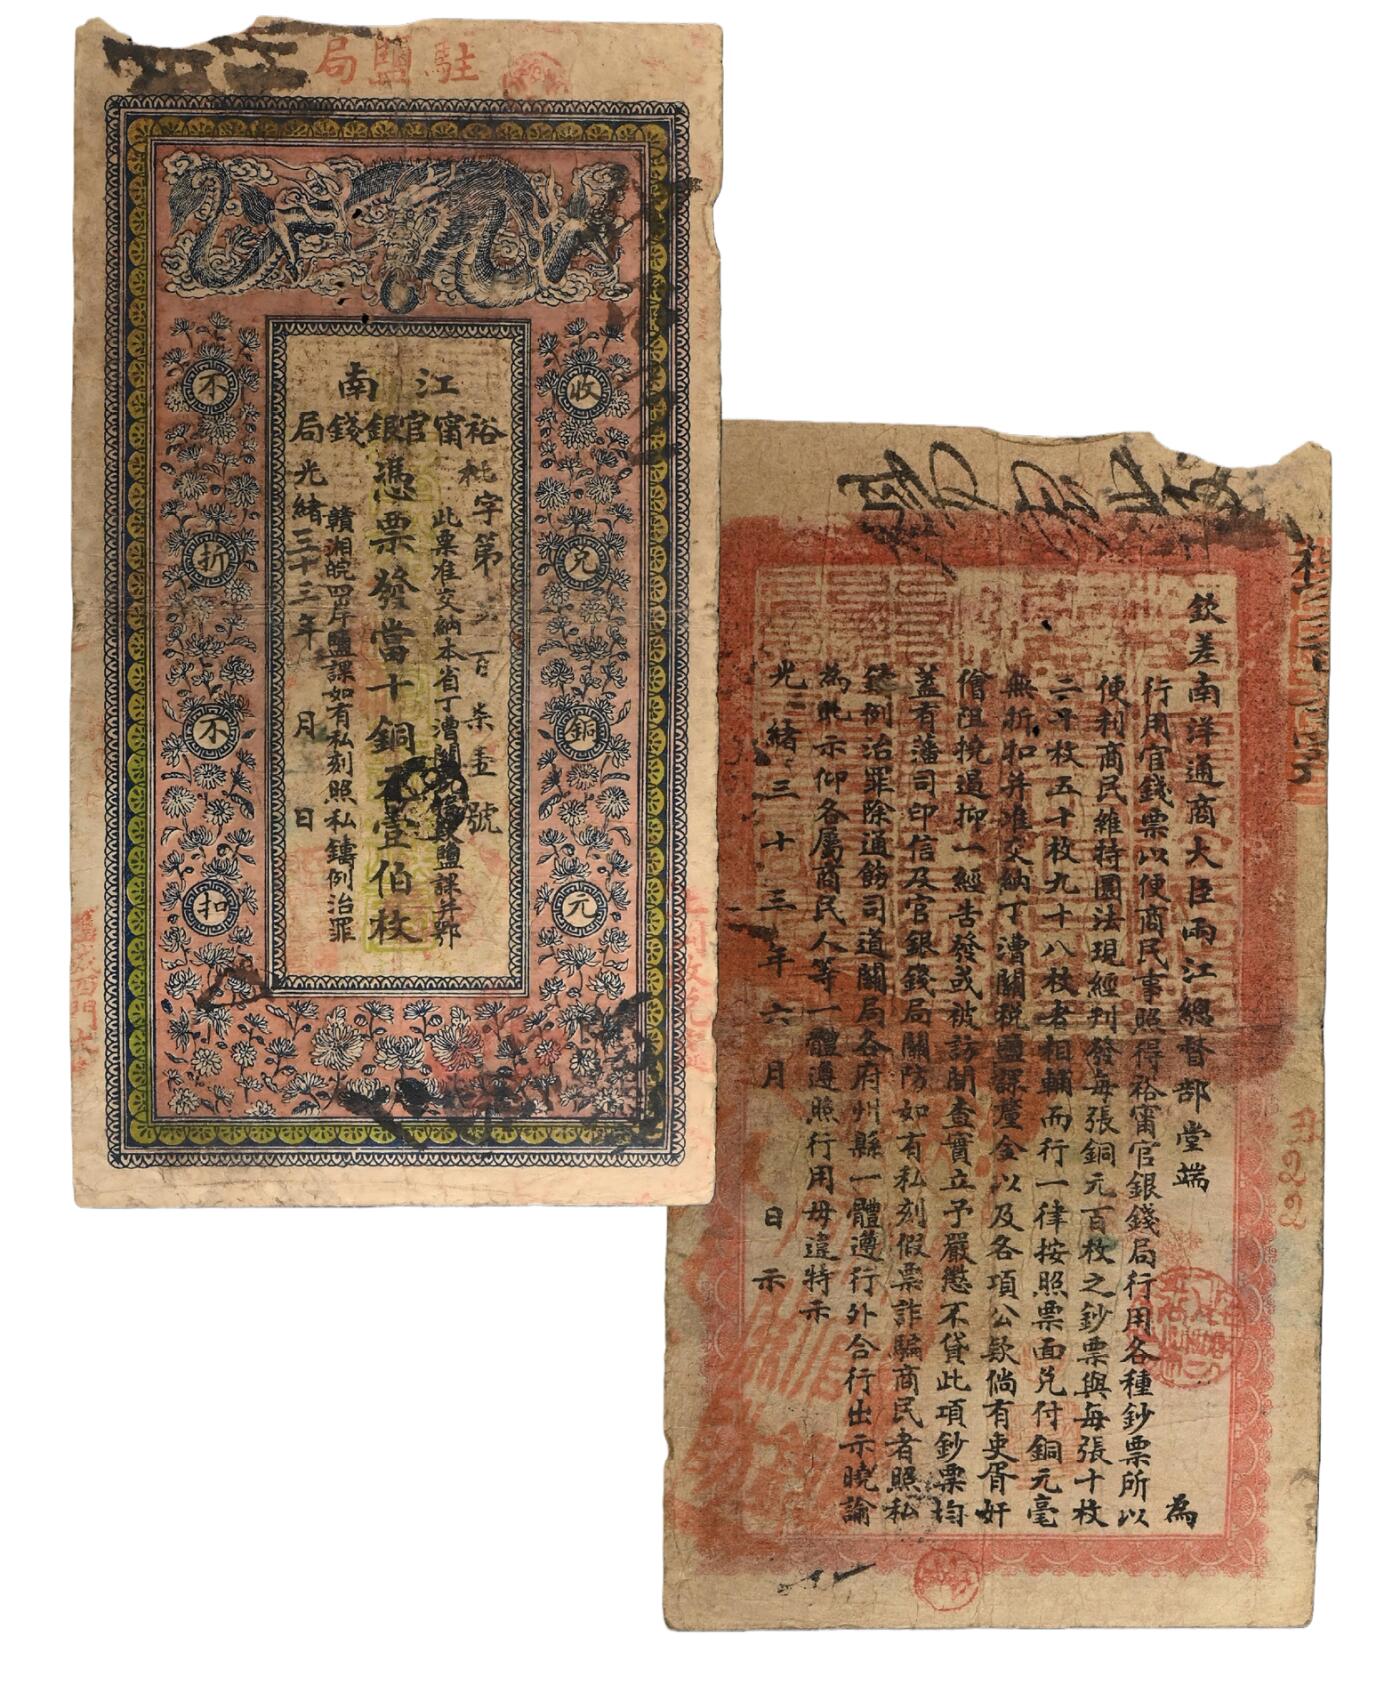 駐鹽局
江南
裕甯官銀錢局
字第 百柒壹號
此票准交納本省丁漕關稅厘鹽課并鄂
憑票發當十銅元壹伯枚
贛湘皖四岸鹽課如有私刻照私鑄例治罪
光緒三十三年 月 日
收兌銅元
不折不扣
欽差南洋通商大臣兩江總督部堂端 為
行用官錢票以便商民事照得裕甯官銀錢局行用各種鈔票所以
便利商民維持圜法現經刊發每張銅元百枚之鈔票與每張十枚
二十枚五十枚九十八枚者相輔而行一律按照票面兌付銅元毫
無折扣并准交納丁漕關稅鹽課釐金以及各項公款倘有吏胥奸
儈阻撓遏抑一經告發或被訪聞查實立予嚴懲不貸此項鈔票均
蓋有藩司印信及官銀錢局關防如有私刻假票詐騙商民者照私
鑄例治罪除通飭司道關局各府州縣一體遵行外合行出示曉諭
為此示仰各屬商民人等一體遵照行用毋違特示
光緒三十三年六月 日示